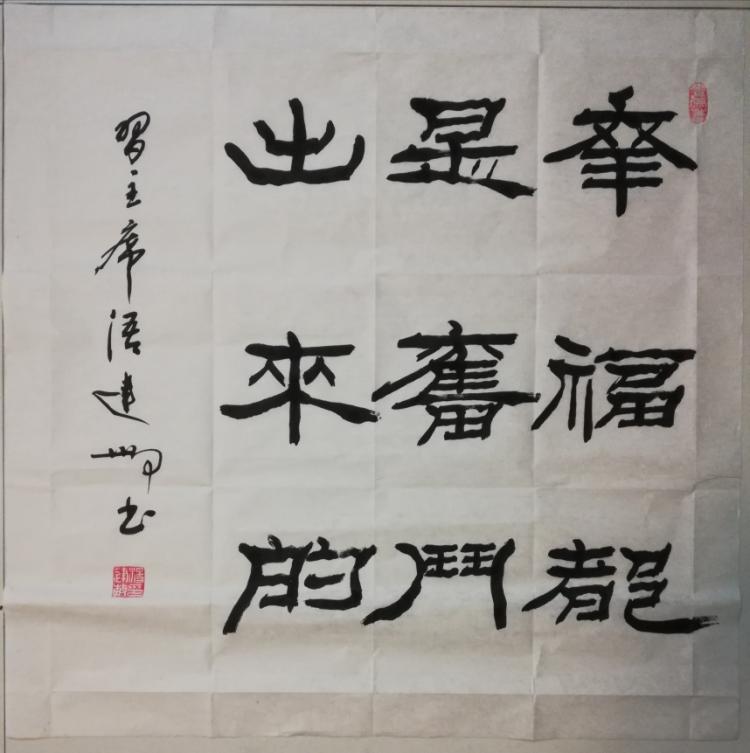 幸福都
是奮鬥
出來的
習主席语建卿书